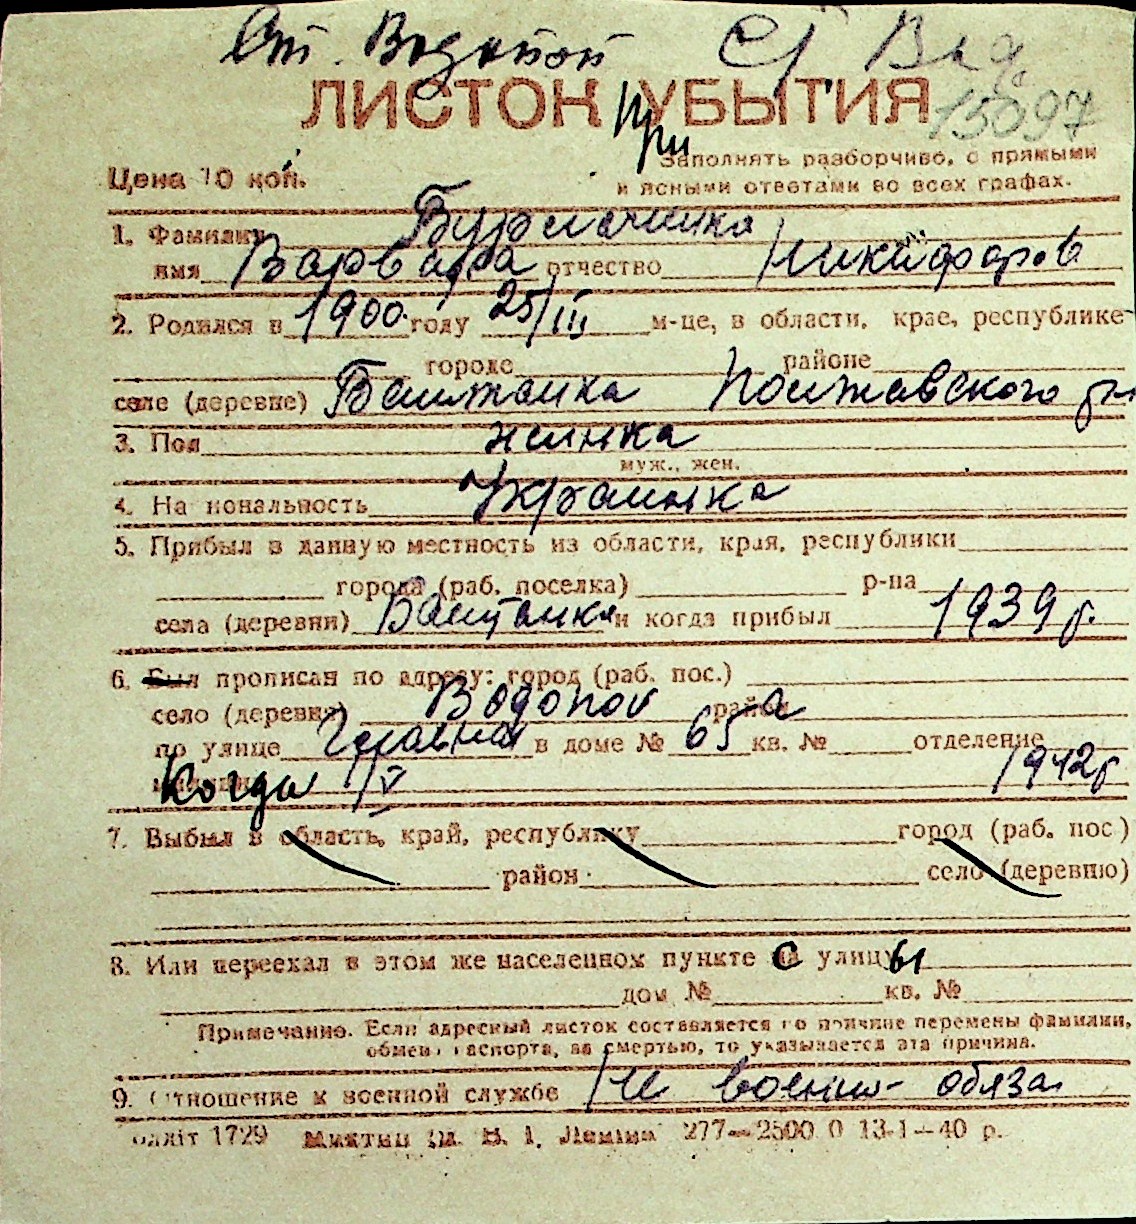 Ст. Водопой
15097
ЛИСТОК при УБЫТИЯ
Цена 10 коп.
Заполнять разборчиво, с прямыми
и ясными ответами во всех графах.
1. Фамилия
имя Варвара отчество Никифоров
2. Родился в 1900 году 25/III м-це, в области, крае, республике
городе районе
селе (деревне) Баштанка Полтавского р-н
3. Пол жинка
муж., жен.
4. Национальность Украинка
5. Прибыл в данную местность из области, края, республики
города (раб. поселка) р-на
села (деревни) Баштанка и когда прибыл 1939 г.
6. Был прописан по адресу: город (раб. пос.)
село (деревня) Водопой района
по улице Главная в доме № 65 кв. № отделение
Когда IV 1942 г
7. Выбыл в область, край, республику город (раб. пос.)
район село (деревню)
8. Или переехал в этом же населенном пункте с улицы
дом № кв. №
Примечание. Если адресный листок составляется по причине перемены фамилии,
обмена паспорта, за смертью, то указывается эта причина.
9. Отношение к военной службе Не военно-обяза
1729 В. І. Леніна 277—2500 0 13-1—40 р.